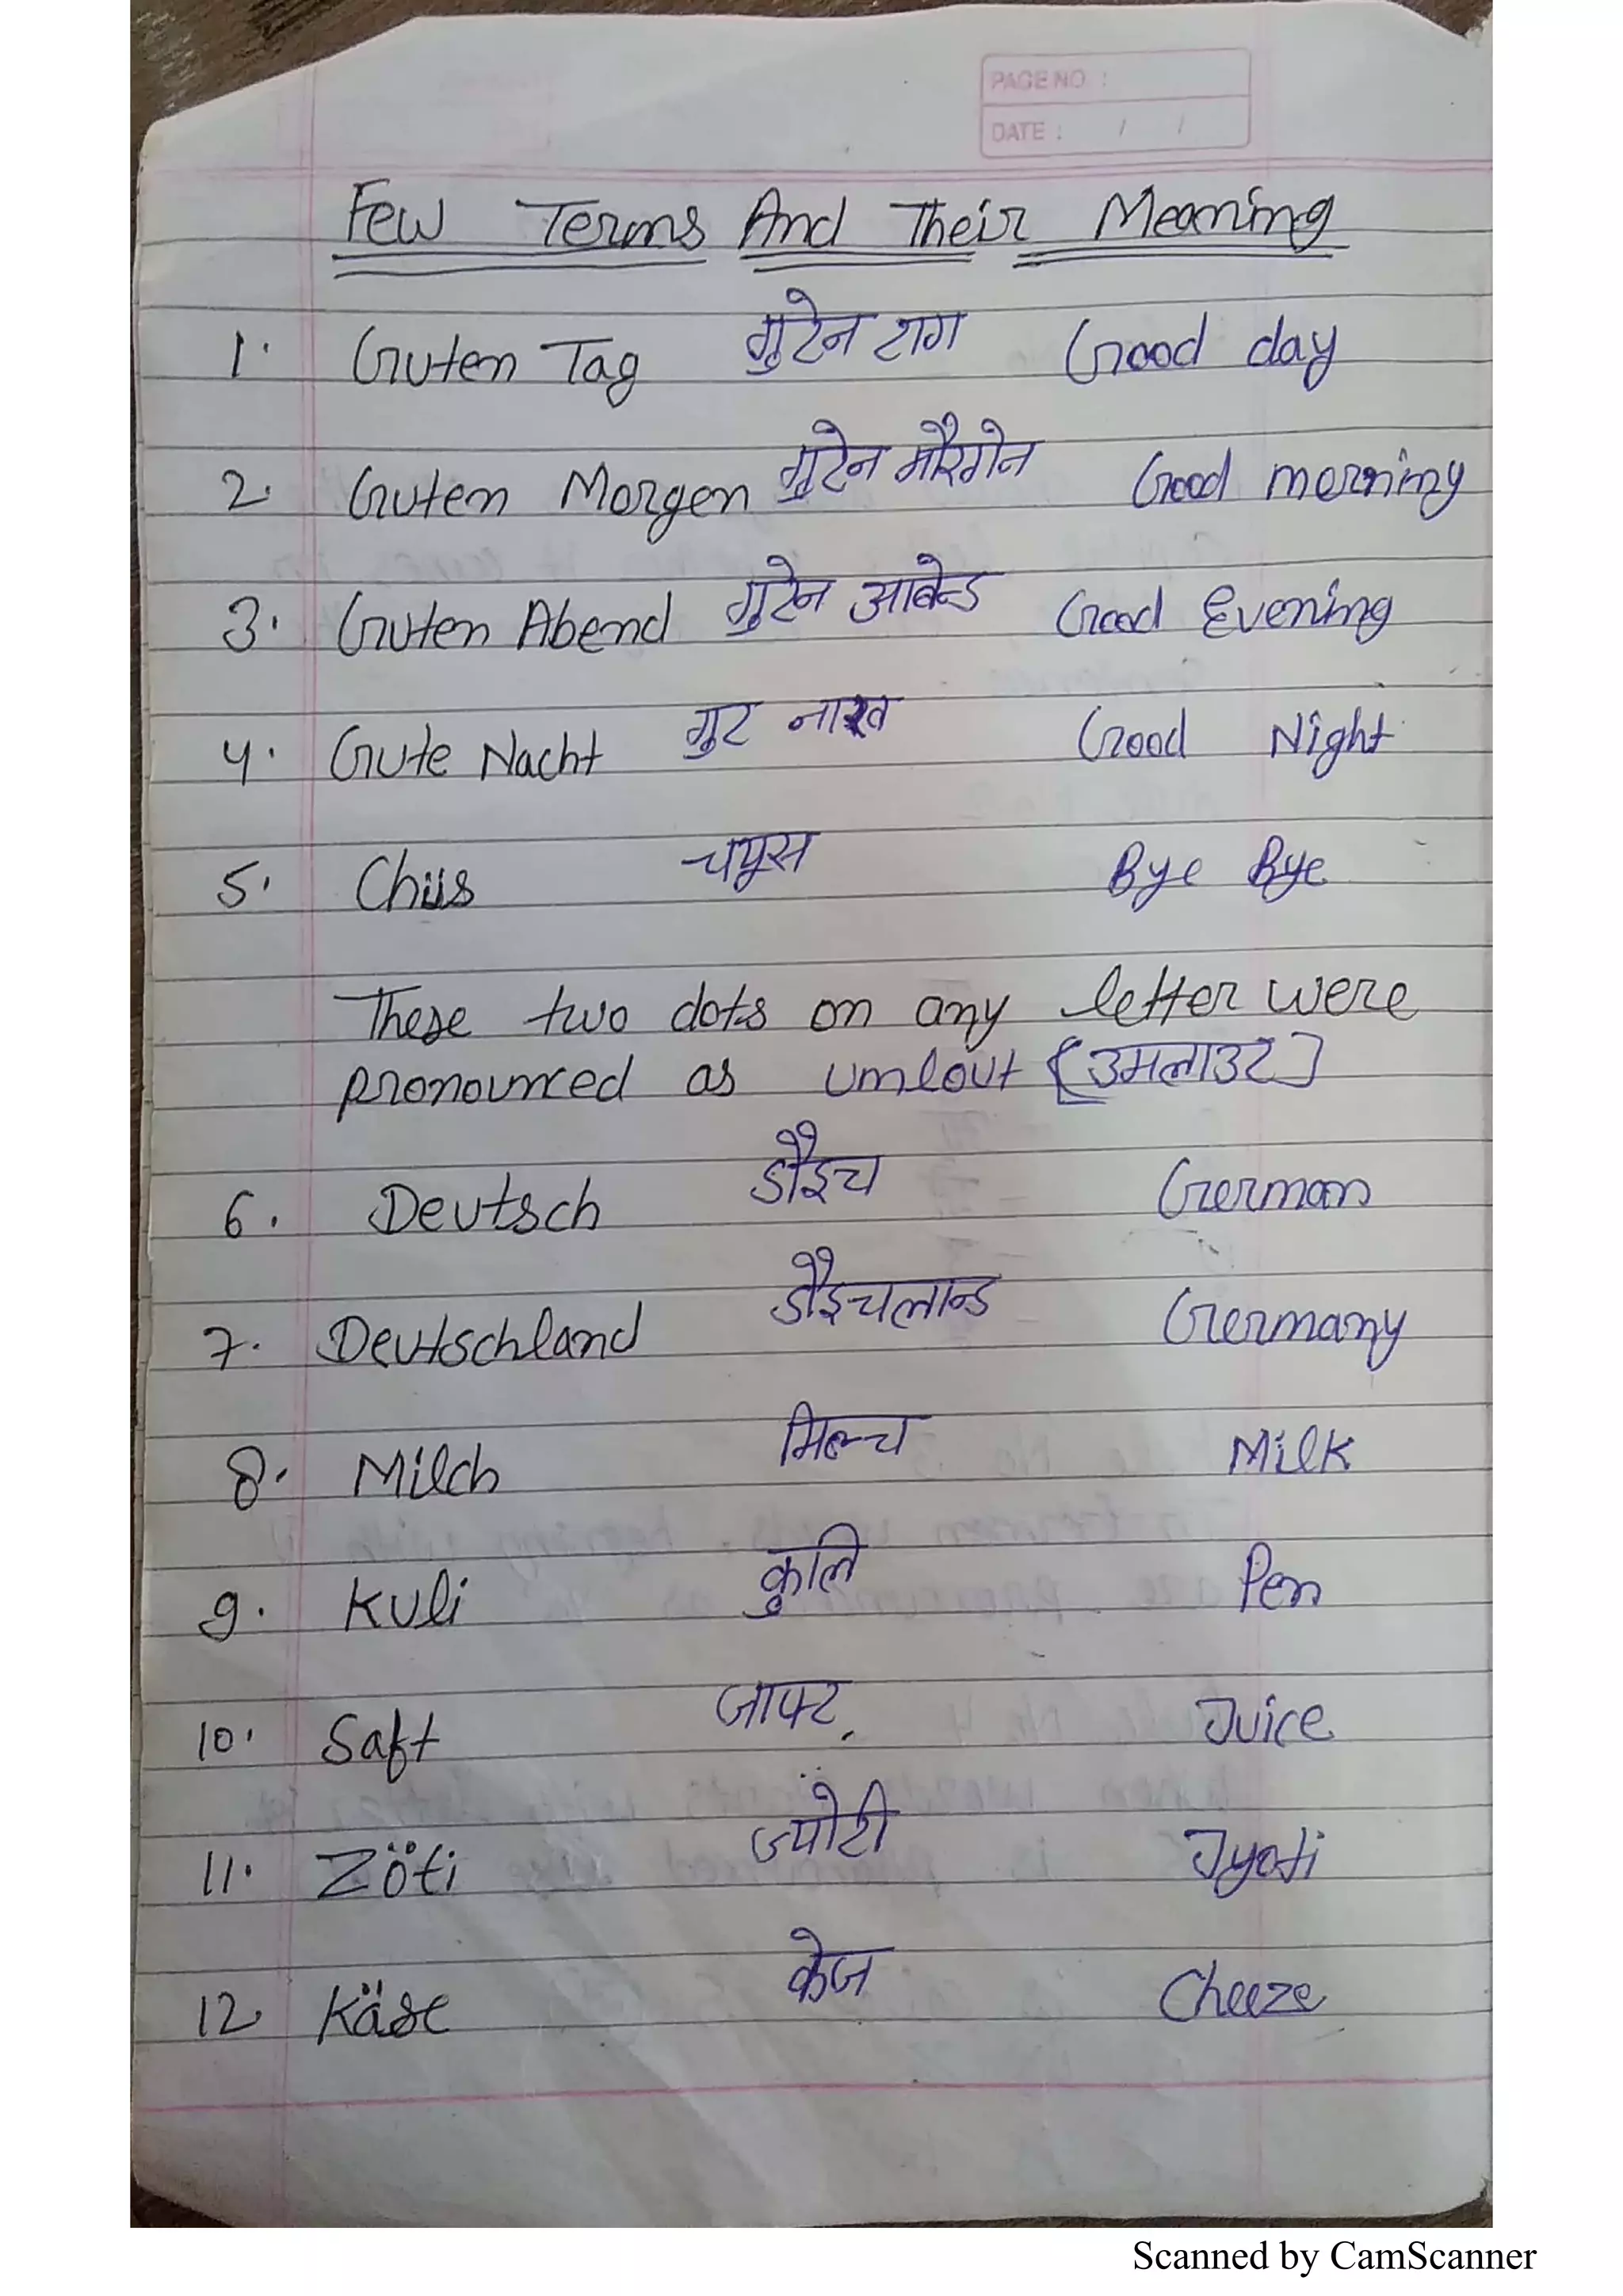 PAGE NO :
DATE : / /
Few Terms And Their Meaning
1. Guten Tag गुटेन टाग Good day
2. Guten Morgen गुटेन मौरगेन Good morning
3. Guten Abend गुटेन आबेन्ड Good Evening
4. Gute Nacht गुट नाख्त Good Night
5. Chüs च्यूस Bye Bye
These two dots on any letter were
pronounced as umlout [उमलाउट]
6. Deutsch डौइच German
7. Deutschland डौइचलान्ड Germany
8. Milch मिल्च Milk
9. Kuli कुलि Pen
10. Saft जाफ्ट Juice
11. Zöti ज्योटी Jyoti
12. Käse केज Cheeze
Scanned by CamScanner